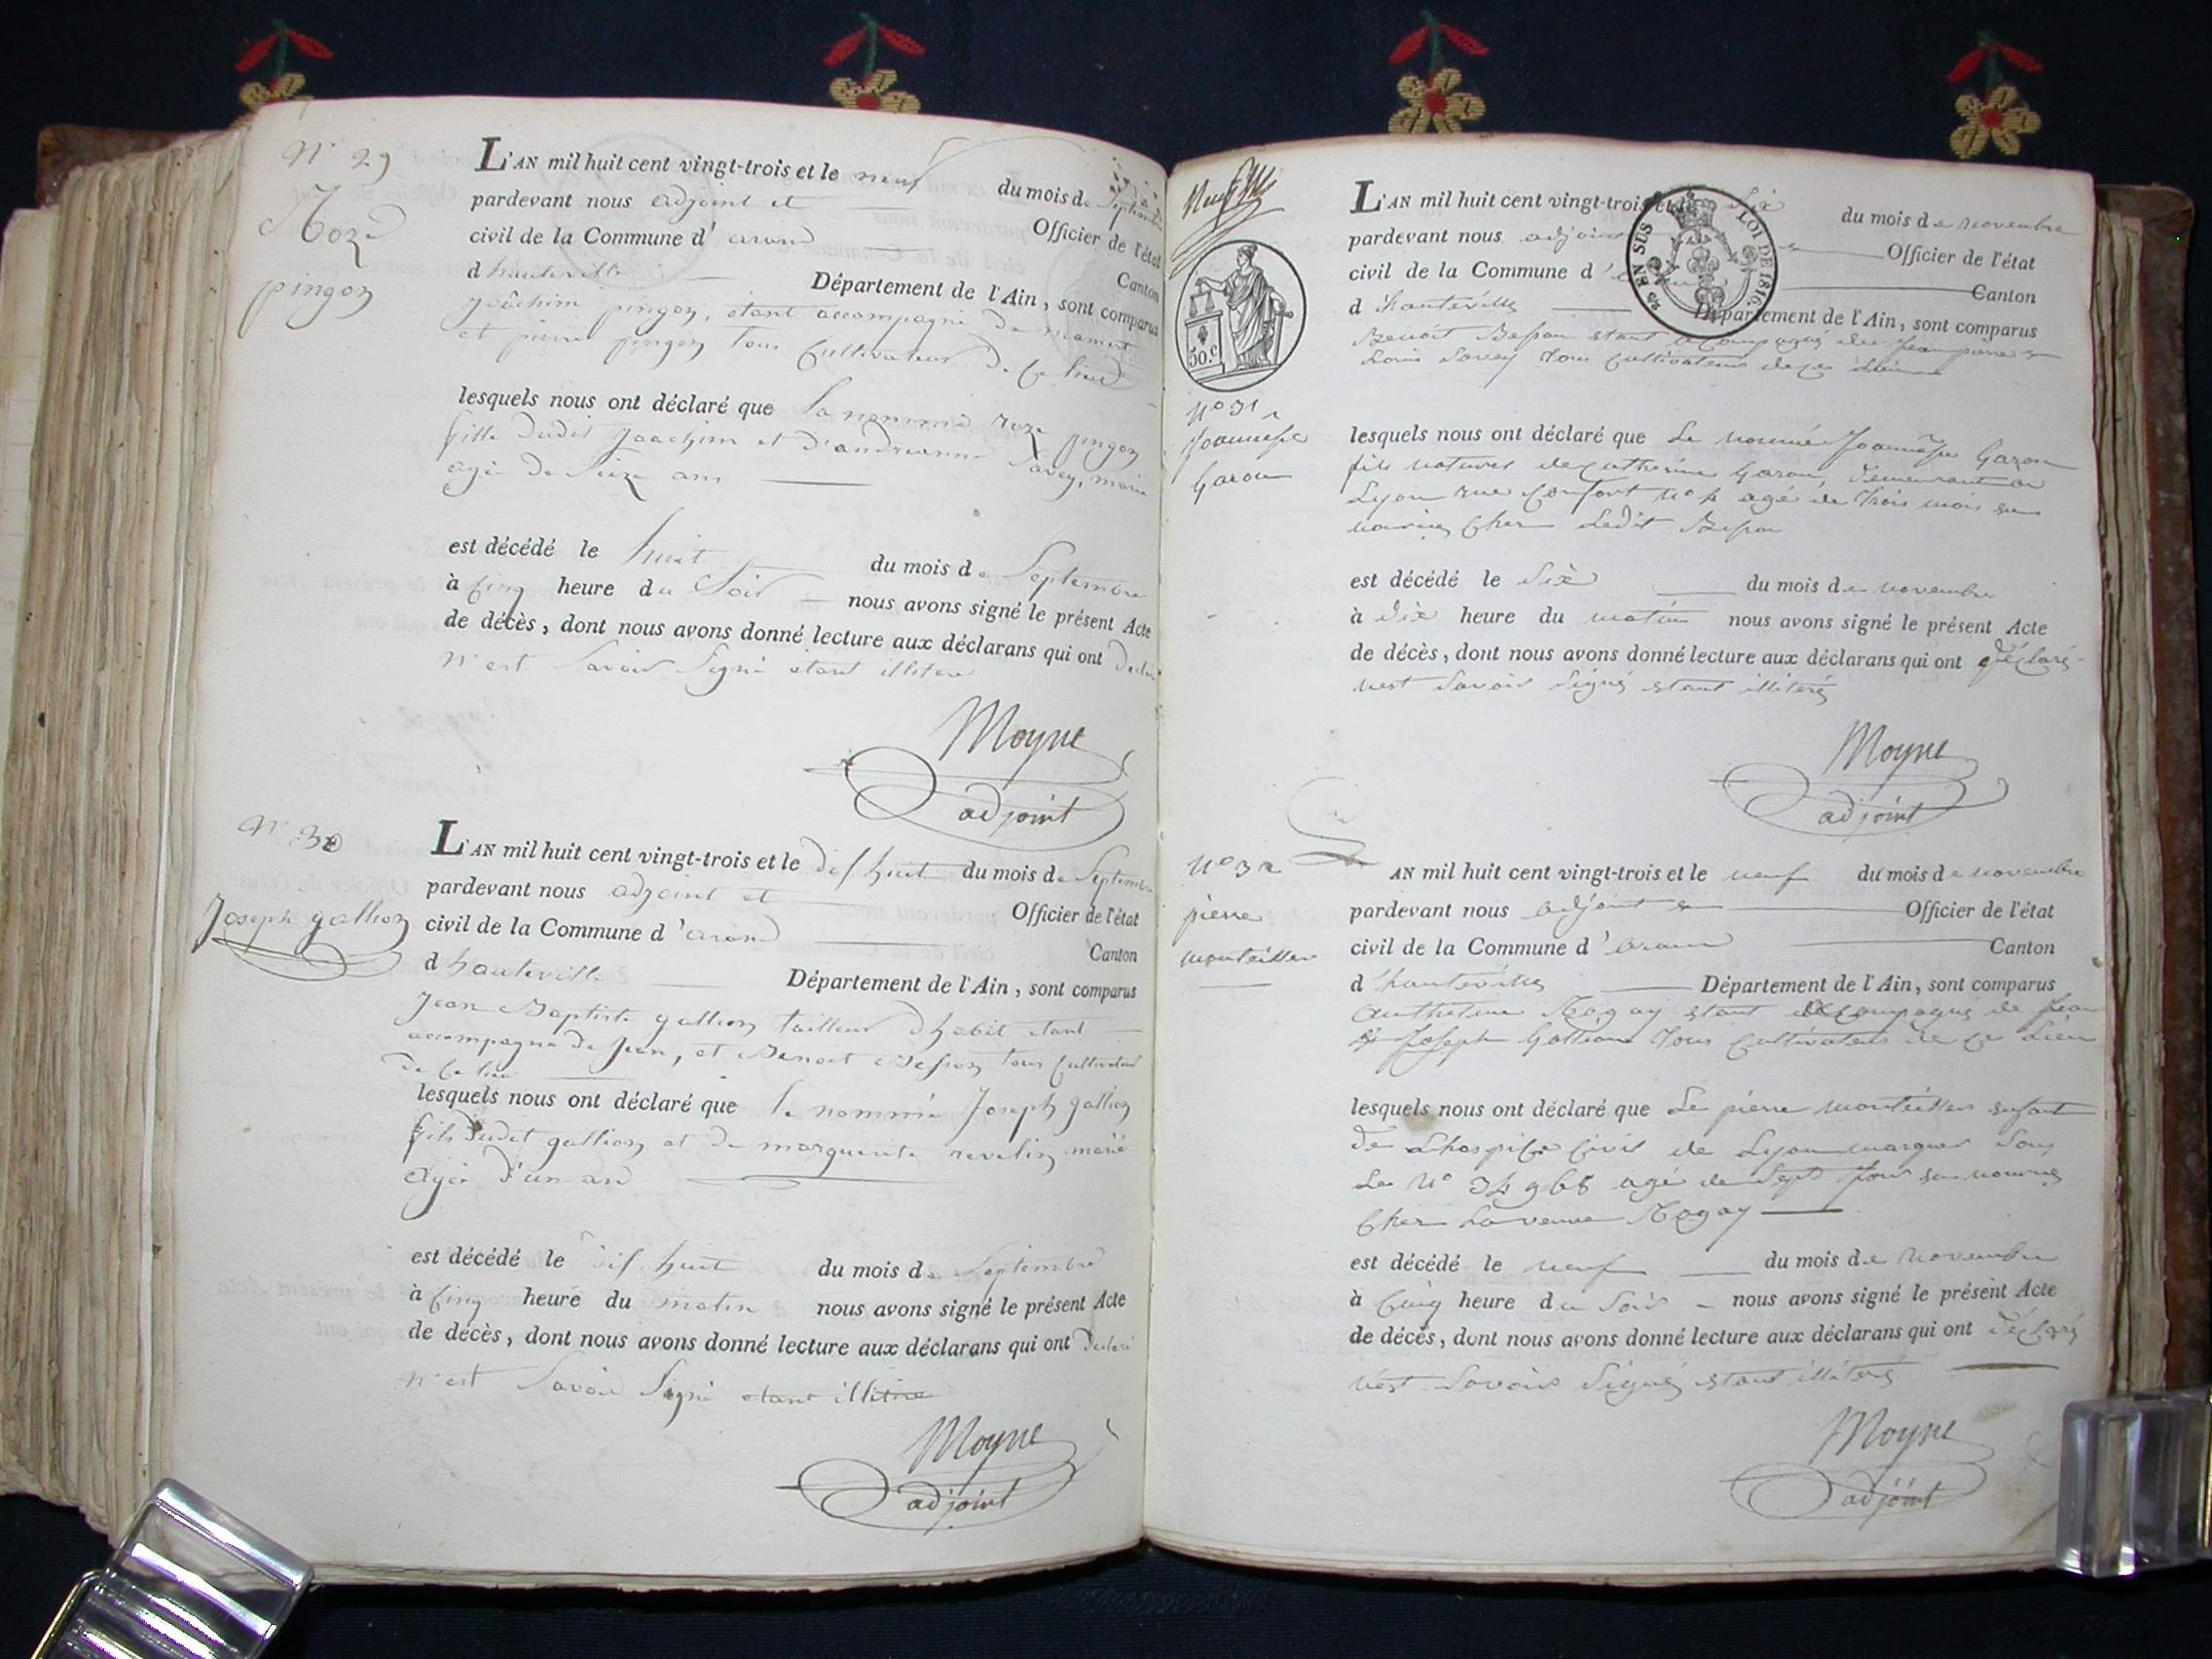 N° 29
Roze
pingon
L'AN mil huit cent vingt-trois et le neuf du mois de Septembre
pardevant nous adjoint et Officier de l'état
civil de la Commune d'aranc Canton
d'hauteville Département de l'Ain, sont comparus
joâchim pingon, étant accompagné de
et pierre pingon tous Cultivateurs de Ce lieu
lesquels nous ont déclaré que la nommée roze pingon
fille dudit joachim et d'andrianne Savey, marié
agé de Seize ans
est décédé le huit du mois de Septembre
à Cinq heure du Soir nous avons signé le présent Acte
de décès, dont nous avons donné lecture aux déclarans qui ont déclaré
n'est Savoir Signé étant illitéré
Moyne
adjoint
N° 30
Joseph gallion
L'AN mil huit cent vingt-trois et le dishuit du mois de Septembre
pardevant nous adjoint et Officier de l'état
civil de la Commune d'aranc Canton
d hauteville Département de l'Ain, sont comparus
Jean Baptiste gallion tailleur d'habit étant
accompagné de Jean, et Benoit Besson tous Cultivateurs
de Ce lieu
lesquels nous ont déclaré que le nommé Joseph gallion
fils dudit gallion et de marguerite ravelin marié
agé d'un an
est décédé le dishuit du mois de Septembre
à Cinq heure du matin nous avons signé le présent Acte
de décès, dont nous avons donné lecture aux déclarans qui ont déclaré
n'est Savoir Signé étant illitéré
Moyne
adjoint
50 c
25 EN SUS LOI DE 1816.
L'AN mil huit cent vingt-trois et le Six du mois de novembre
pardevant nous adjoint Officier de l'état
civil de la Commune d' Canton
d'hauteville Département de l'Ain, sont comparus
Benoit Besson étant accompagné de Jeanpierre et
Louis Savey tous Cultivateurs de Ce Lieu
N° 31
Joannesse
Garon
lesquels nous ont déclaré que Le nommé Joannesse Garon
fils naturel de Catherine Garon, demeurant a
Lyon rue Confort N° 4 agé de trois mois en
nourrice Cher Ledit Besson
est décédé le Six du mois de novembre
à dix heure du matin nous avons signé le présent Acte
de décès, dont nous avons donné lecture aux déclarans qui ont déclaré
nest Savoir Signé étant illitéré
Moyne
adjoint
N° 32
pierre
monteiller
L'AN mil huit cent vingt-trois et le neuf du mois de novembre
pardevant nous adjoint et Officier de l'état
civil de la Commune d'aranc Canton
d'hauteville Département de l'Ain, sont comparus
Anthelme Rogay étant accompagné de Jean
Joseph Gallion tous Cultivateurs de Ce Lieu
lesquels nous ont déclaré que Le pierre monteiller enfant
de Lhospice Civil de Lyon marquer Sous
Le N° 34968 agé de Sept jour en nourrice
Cher La veuve Rogay
est décédé le neuf du mois de novembre
à Cinq heure du Soir nous avons signé le présent Acte
de décès, dont nous avons donné lecture aux déclarans qui ont déclaré
nest Savoir Signé étant illitéré
Moyne
adjoint